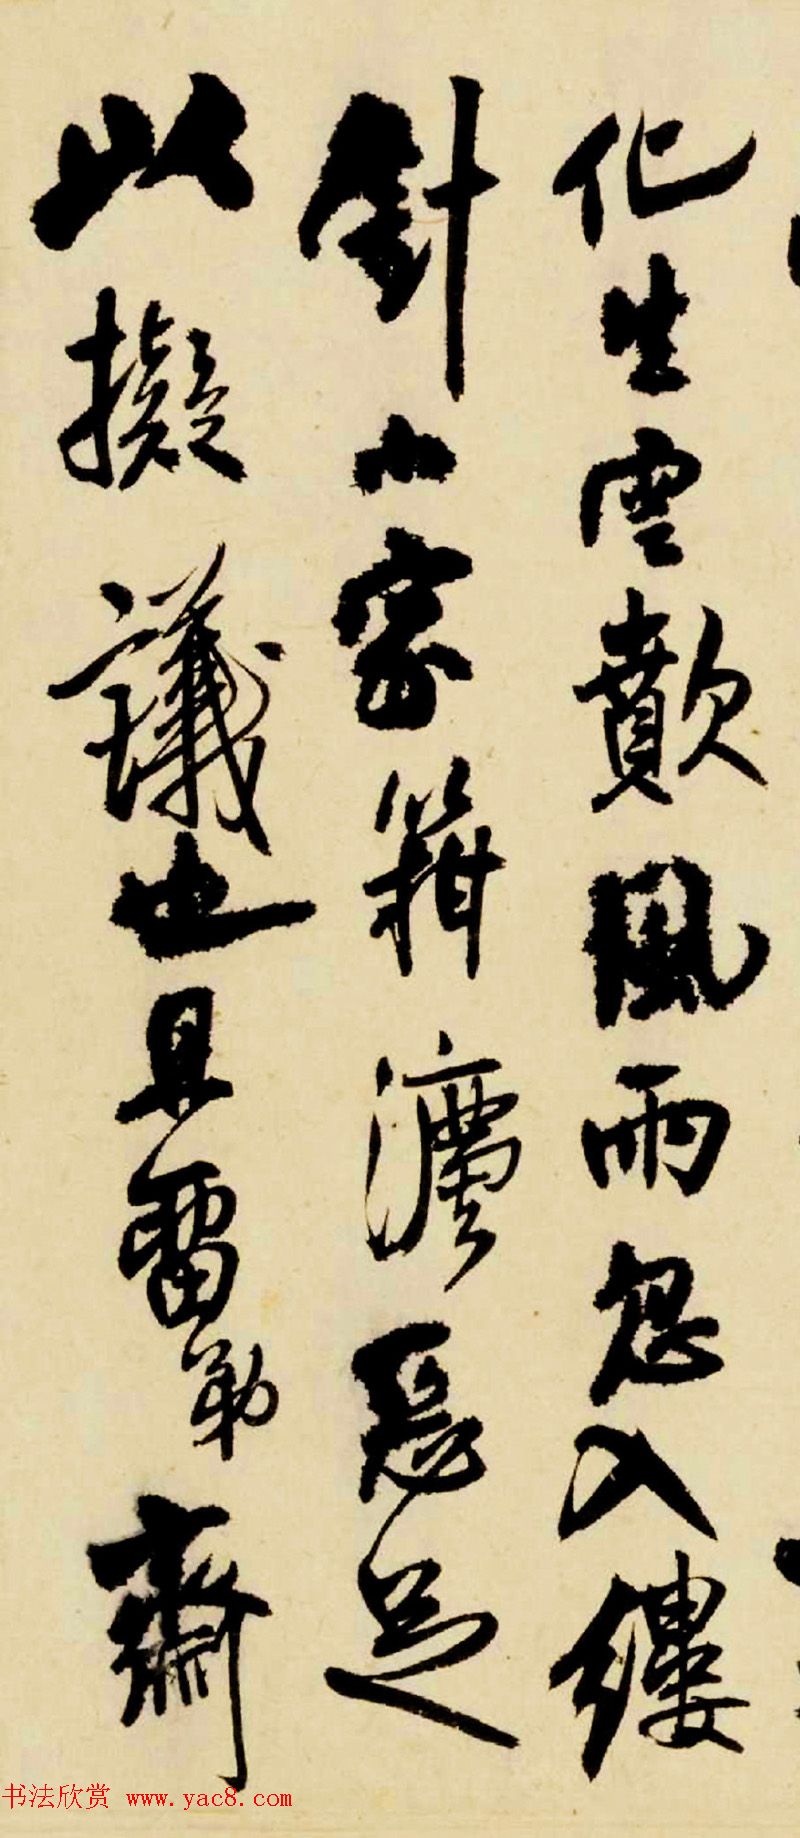 化生雲歕風雨忽入縷
針小家籍濃惡足
以擬議也具留勒齋
书法欣赏 www.yac8.com